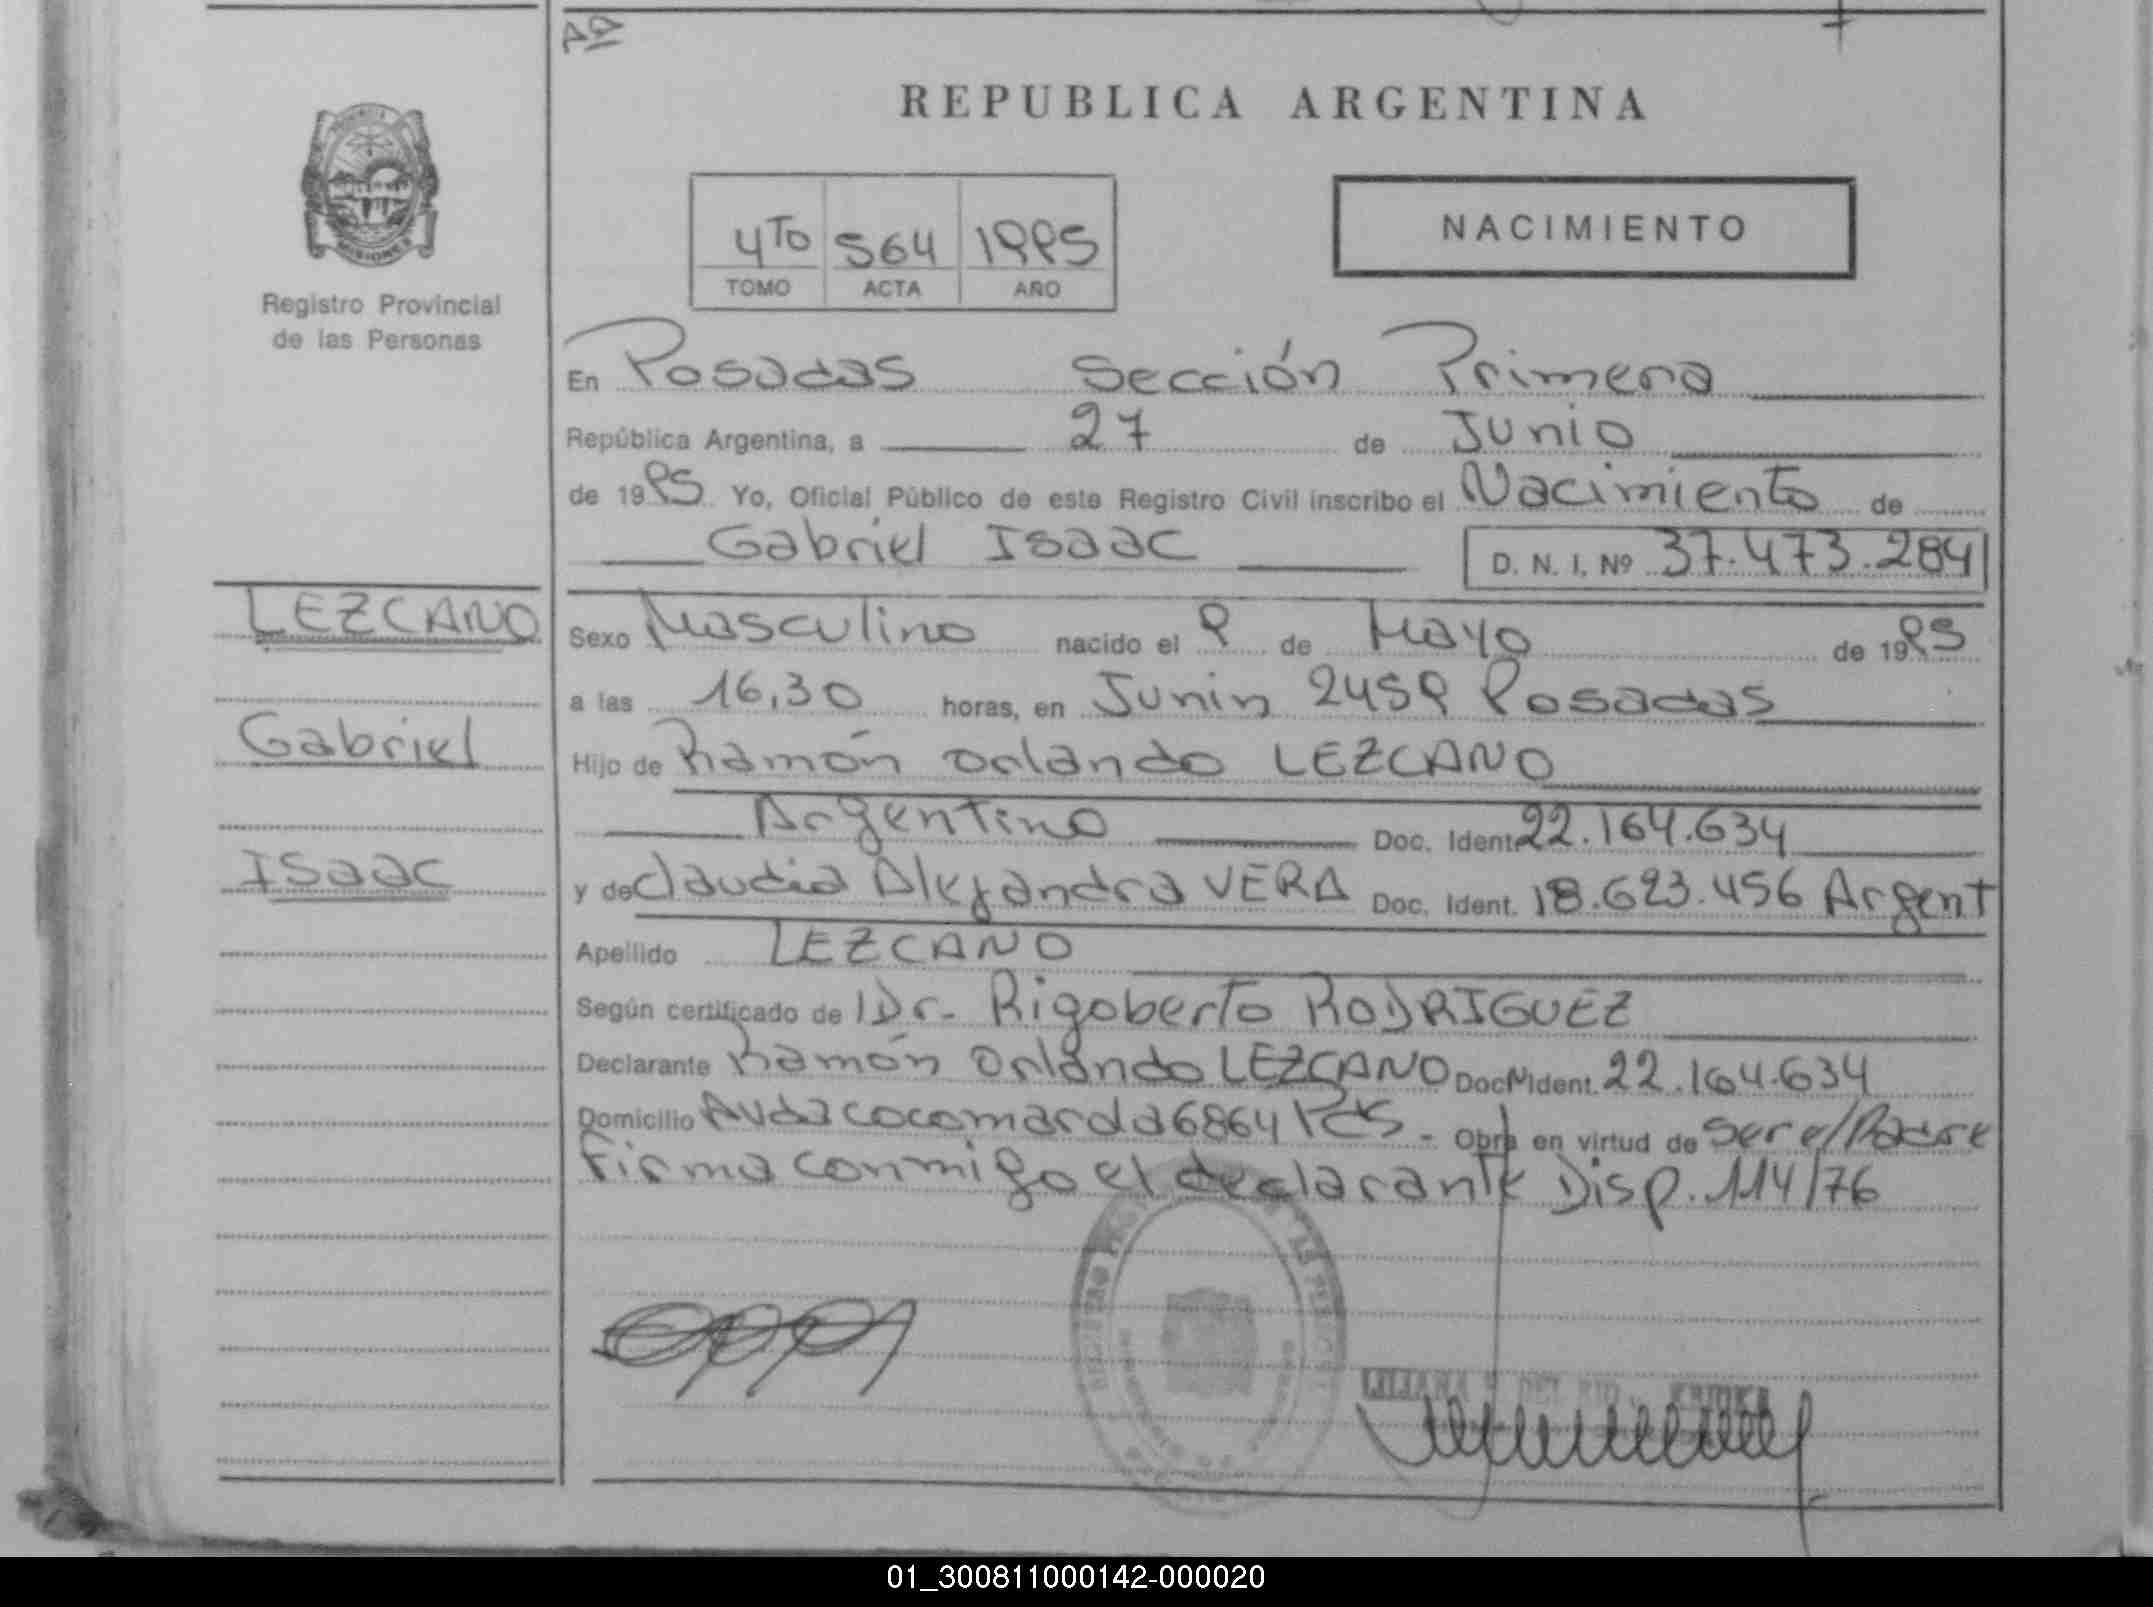 REPUBLICA ARGENTINA
NACIMIENTO
4TO 564 1995
TOMO ACTA AÑO
Registro Provincial
de las Personas
En Posadas Sección Primera
República Argentina, a 27 de Junio
de 1995 Yo, Oficial Público de este Registro Civil inscribo el Nacimiento de
Gabriel Isaac D. N. I. Nº 37.473.284
LEZCANO
Gabriel
Isaac
Sexo Masculino nacido el 9 de Mayo de 1995
a las 16,30 horas, en Junin 2459 Posadas
Hijo de Ramón Orlando LEZCANO
Argentino Doc. Ident. 22.164.634
y de Claudia Alejandra VERA Doc. Ident. 18.623.456 Argent
Apellido LEZCANO
Según certificado de Dr. Rigoberto RODRIGUEZ
Declarante Ramón Orlando LEZCANO Doc. Ident. 22.164.634
Domicilio Avda cocomarola 6864 Pdas - Obra en virtud de Ser el Padre
Firma conmigo el declarante Disp. 114/76
01_300811000142-000020